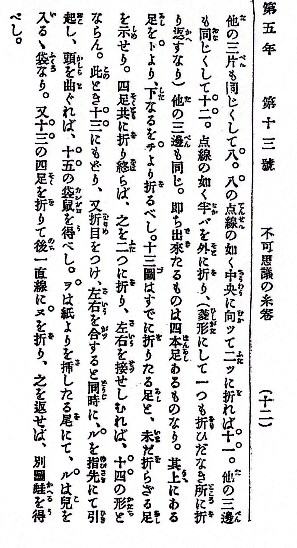 第五年　第十三號　不可思議の未答　（十二）
他の三片も同じくして八。八の点線の如く中央に向ッて二ッに折れば十一。他の三邊
も同じくして十二。点線の如く半バを外に折り、（菱形にして一つも折ひだなき所に折
り返すなり）他の三邊も同じ。即ち出來たるものは四本足あるものなり。其上にある
足をトより、下なるをチより折るべし。十三圖はすでに折りたる足と、未だ折らざる足
を示せり。四足共に折り終らば、之を二つに折り、左右を接せしむれば、十四の形と
ならん。此とき十三にもどり、又折目をつけ、左右を合すると同時に、ルを指先にて引
起し、頭を曲ぐれば、十五の袋鼠を得べし。ヲは紙よりを挿したる尾にて、ルは兒を
入るゝ袋なり。又十三の四足を折りて後一直線にヌを折り、之を返せば、別圖蛙を得
べし。